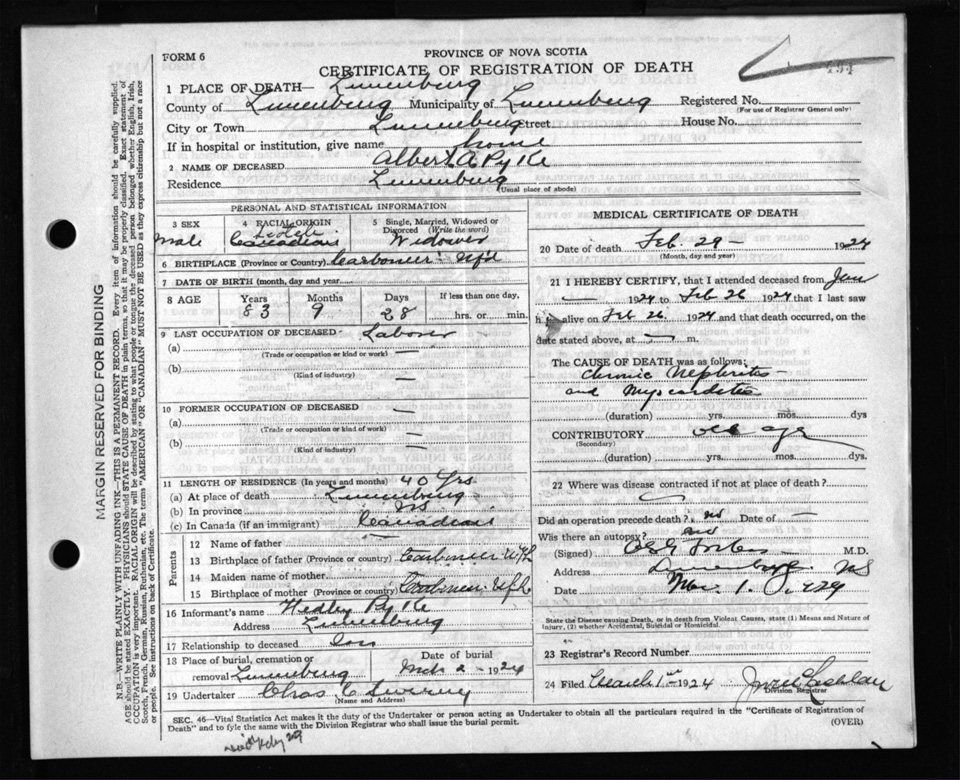 FORM 6
PROVINCE OF NOVA SCOTIA
CERTIFICATE OF REGISTRATION OF DEATH
494
1 PLACE OF DEATH— Lunenburg
County of Lunenburg Municipality of Lunenburg Registered No.
(For use of Registrar General only)
City or Town Lunenburg Street House No.
If in hospital or institution, give name home
2 NAME OF DECEASED Albert A Pyke
Residence Lunenburg
(Usual place of abode)
PERSONAL AND STATISTICAL INFORMATION
3 SEX 4 RACIAL ORIGIN 5 Single, Married, Widowed or Divorced (Write the word)
Male Canadian Widower
6 BIRTHPLACE (Province or Country) Carbonier Nfld
7 DATE OF BIRTH (month, day and year)
8 AGE Years Months Days If less than one day,
83 9 28 hrs. or min.
9 LAST OCCUPATION OF DECEASED Laborer
(a) —
(Trade or occupation or kind or work)
(b) —
(Kind of industry)
10 FORMER OCCUPATION OF DECEASED —
(a) —
(Trade or occupation or kind of work)
(b) —
(Kind of industry)
11 LENGTH OF RESIDENCE (In years and months) 40 Yrs.
(a) At place of death Lunenburg
(b) In province NS
(c) In Canada (if an immigrant) Canadian
Parents
12 Name of father —
13 Birthplace of father (Province or country) Carbonier Nfld
14 Maiden name of mother
15 Birthplace of mother (Province or country) Carbonier Nfld
16 Informant's name Hedley Pyke
Address Lunenburg
17 Relationship to deceased Son
18 Place of burial, cremation or removal Lunenburg Date of burial Mch 2 - 1924
19 Undertaker Chas C Sweeny
(Name and Address)
MEDICAL CERTIFICATE OF DEATH
20 Date of death Feb. 29 - 1924
(Month, day and year)
21 I HEREBY CERTIFY, that I attended deceased from Jan
— 1924 to Feb 26 1924 that I last saw
h alive on Feb 26. 1924 and that death occurred, on the
date stated above, at — m.
The CAUSE OF DEATH was as follows:
Chronic Nephritis
and Myocarditis
(duration) yrs. mos. dys
CONTRIBUTORY old age
(Secondary)
(duration) yrs. mos. dys.
22 Where was disease contracted if not at place of death?
Did an operation precede death? no Date of —
Was there an autopsy? no
(Signed) M.D.
Address Lunenburg NS
Date Mar. 1.
State the Disease causing Death, or in death from Violent Causes, state (1) Means and Nature of
Injury, (2) whether Accidental, Suicidal or Homicidal.
23 Registrar's Record Number
24 Filed March 1st 1924
Division Registrar
SEC. 46—Vital Statistics Act makes it the duty of the Undertaker or person acting as Undertaker to obtain all the particulars required in the "Certificate of Registration of
Death" and to fyle the same with the Division Registrar who shall issue the burial permit.
(OVER)
MARGIN RESERVED FOR BINDING
N.B.—WRITE PLAINLY WITH UNFADING INK—THIS IS A PERMANENT RECORD. Every item of information should be carefully supplied.
AGE should be stated EXACTLY. PHYSICIANS should STATE CAUSE OF DEATH in plain terms, so that it may be properly classified. Exact statement of
OCCUPATION is very important. RACIAL ORIGIN will be described by stating to what people or tongue the deceased person belonged whether English, Irish,
Scotch, French, German, Russian, Ruthenian, etc. The terms "AMERICAN" OR "CANADIAN" MUST NOT BE USED as they express citizenship but not a race
or people. See instructions on back of Certificate.